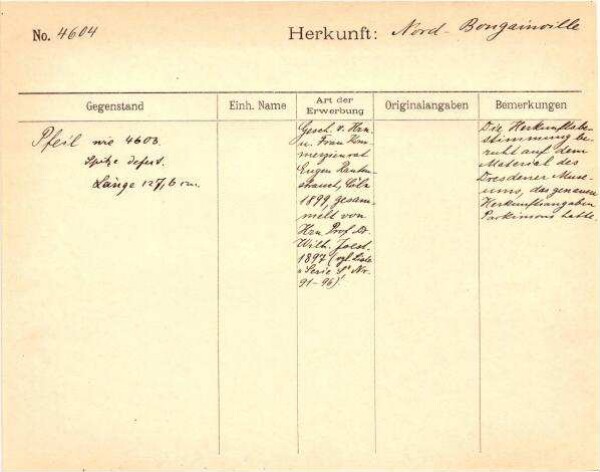 No. 4604
Herkunft: Nord-Bougainville
Gegenstand
Einh. Name
Art der
Erwerbung
Originalangaben
Bemerkungen
Pfeil wie 4603.
Spitze defect.
Länge 127,6 cm.
Gesch. v. Hrn.
u. Frau Kom-
merzienrat
Eugen Rauten-
strauch, Cöln
1899, gesam-
melt von
Hrn. Prof. Dr.
Wilh. Joest.
1897 (vgl. Liste
"Serie I" Nr.
91-96)
Die Herkunftsbe-
stimmung be-
ruht auf dem
Material des
Dresdener Muse-
ums, das genauere
Herkunftsangaben
Parkinsons hatte.